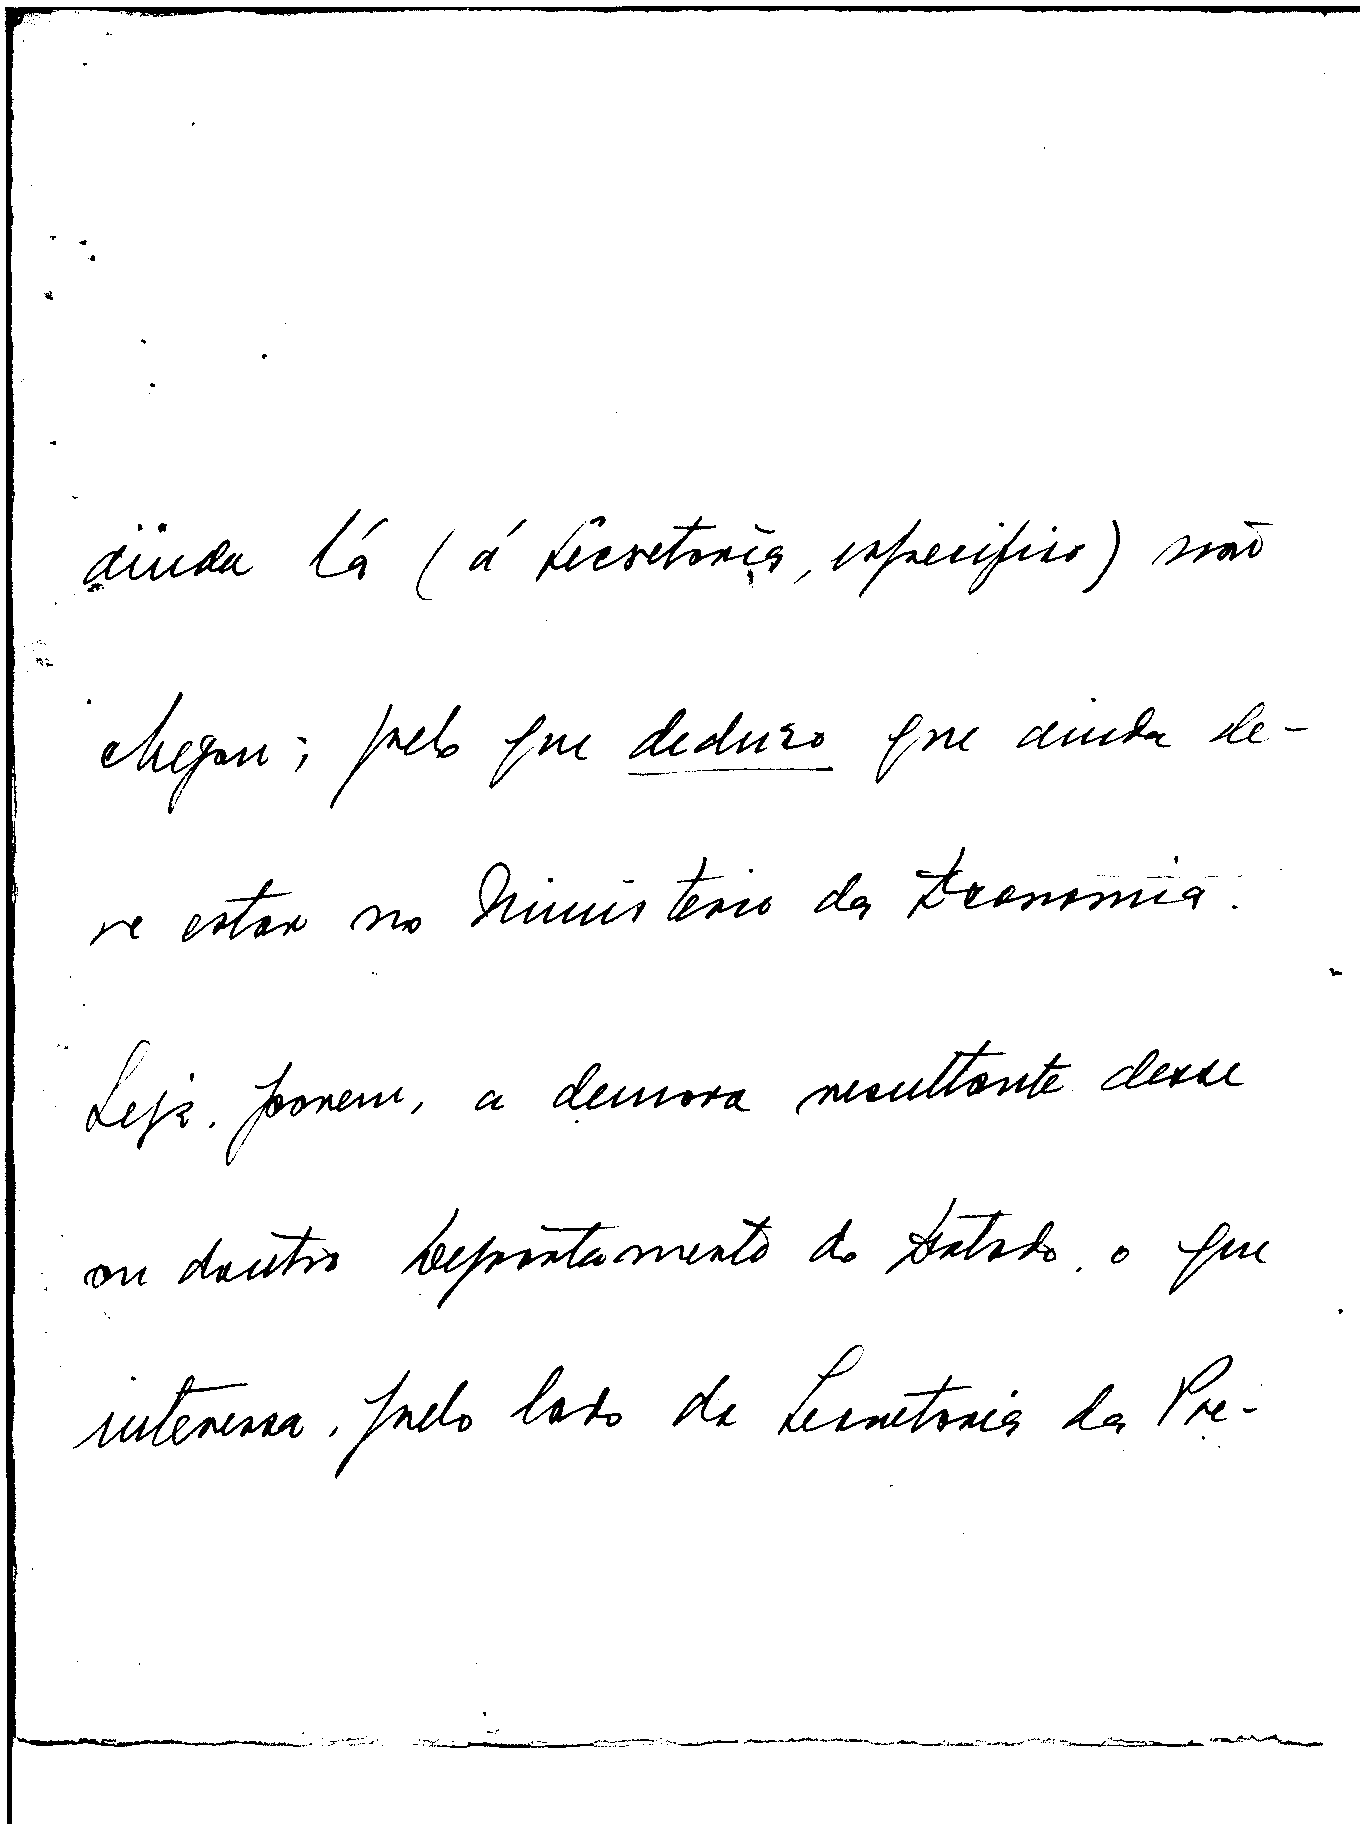 ainda lá (á Secretaria, especifico) não
chegou; pelo que deduzo que ainda de-
ve estar no Ministerio da Economia.
Seja, porem, a demora resultante desse
ou doutro Departamento do Estado, o que
interessa, pelo lado da Secretaria da Pre-